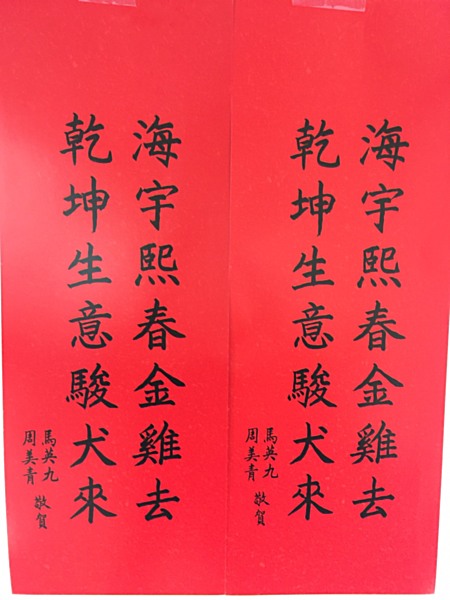 海宇熙春金雞去
乾坤生意駿犬來
馬英九
周美青
敬賀
海宇熙春金雞去
乾坤生意駿犬來
馬英九
周美青
敬賀